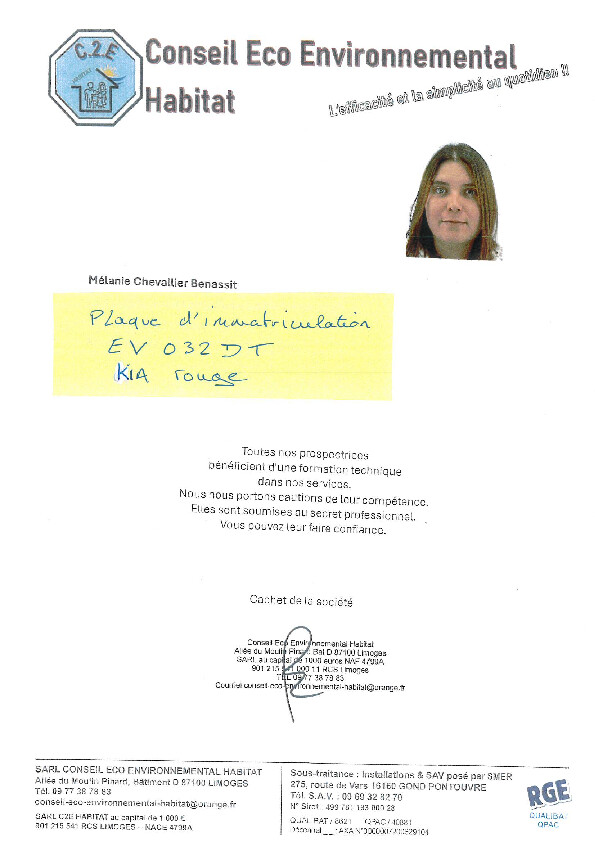 C.2.E
HABITAT
Conseil Eco Environnemental
Habitat
L'efficacité et la simplicité au quotidien !!
Mélanie Chevallier Benassit
Plaque d'immatriculation
EV 032 DT
KIA rouge
Toutes nos prospectrices
bénéficient d'une formation technique
dans nos services.
Nous nous portons cautions de leur compétence.
Elles sont soumises au secret professionnel.
Vous pouvez leur faire confiance.
Cachet de la société
Conseil Eco Environnemental Habitat
Allée du Moulin Pinard Bat D 87100 Limoges
SARL au capital de 1000 euros NAF 4799A
901 215 541 000 11 RCS Limoges
TEL 09 77 38 78 83
Courriel conseil-eco-environnemental-habitat@orange.fr
SARL CONSEIL ECO ENVIRONNEMENTAL HABITAT
Allée du Moulin Pinard, Bâtiment D 87100 LIMOGES
Tél. 09 77 38 78 83
conseil-eco-environnemental-habitat@orange.fr
SARL C2E HABITAT au capital de 1 000 €
901 215 541 RCS LIMOGES - NACE 4799A
Sous-traitance : Installations & SAV posé par SMER
275, route de Vars 16160 GOND PONTOUVRE
Tél. S.A.V. : 09 69 32 82 70
N° Siret
QUALIBAT / 8621
RGE
QUALIBAT
QPAC